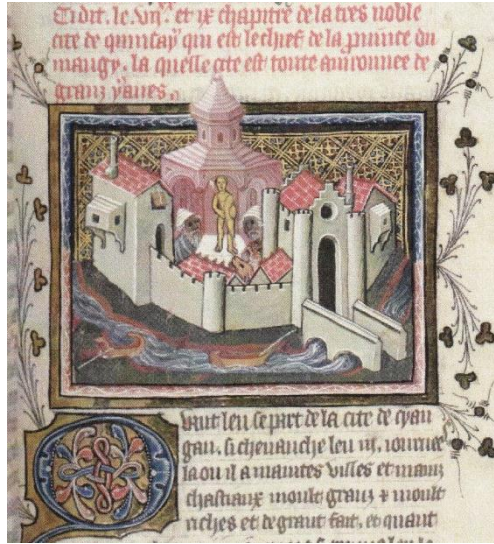 Ci dit. le. Viij.ˣˣ et ix chapitre de la tres noble
cite de quinsay qui est le chief de la prouince du
mangy. la quelle cite est toute auironnee de
granz yaues.
Quant len se part de la cite de cyan
gan. si cheuauche len iij. iournees
la ou il a maintes villes et mainz
chastiaux moult granz & moult
riches et de grant fait. et quant